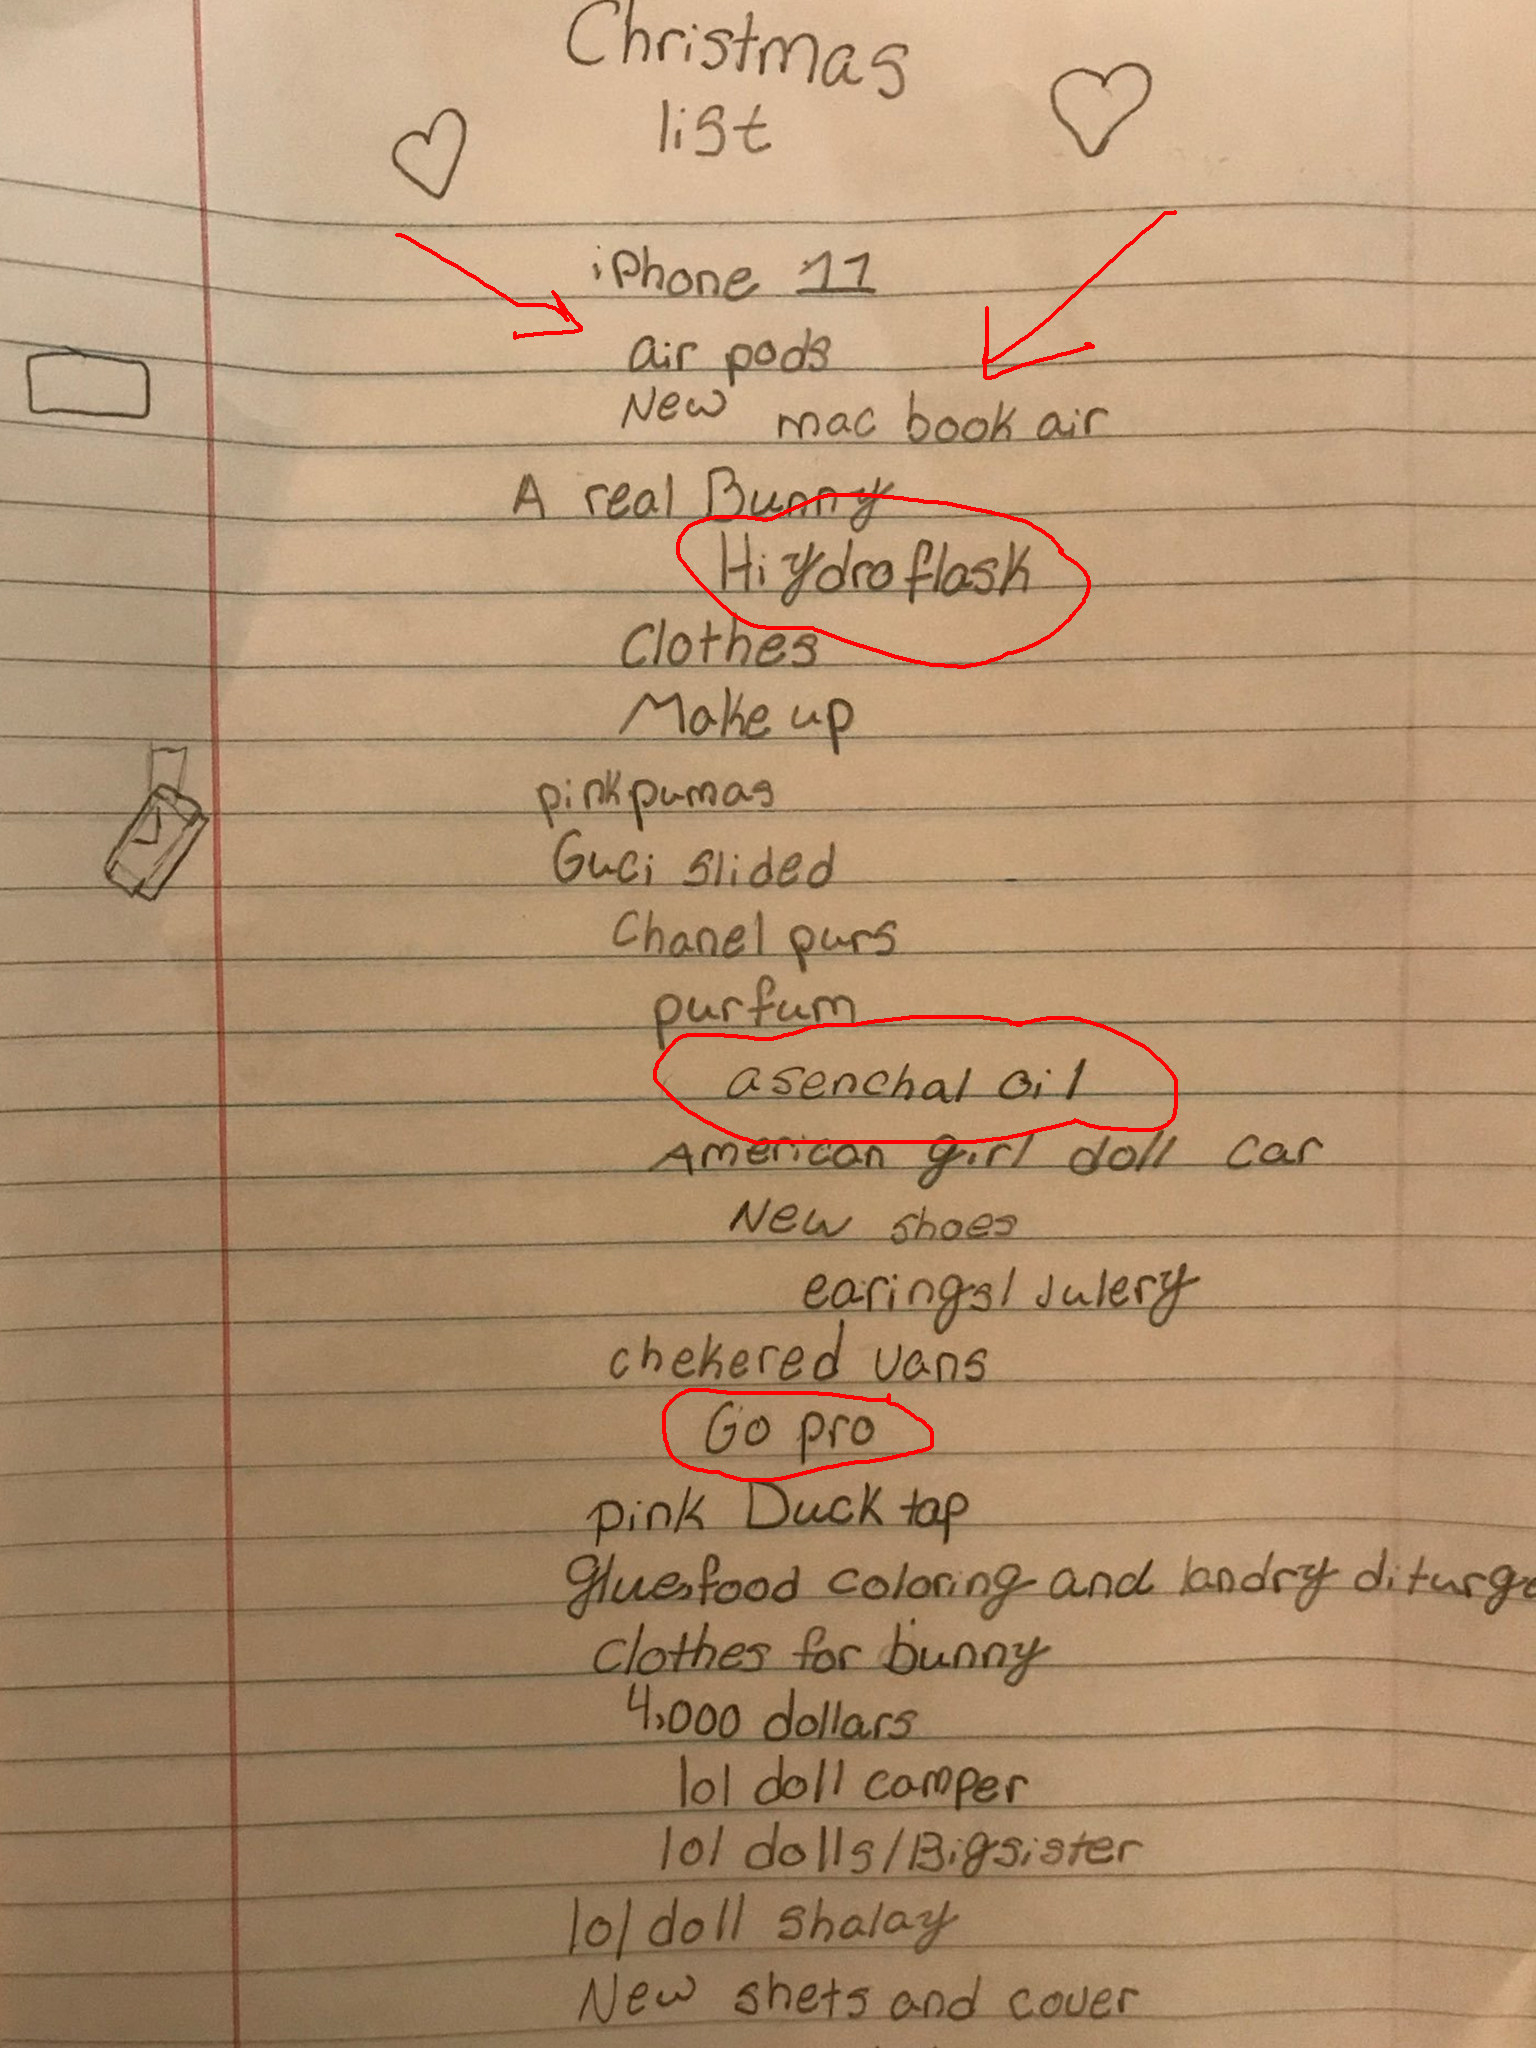 Christmas
list
iphone 11
air pods
New mac book air
A real Bunny
Hiydroflask
Clothes
Make up
pink pumas
Guci slided
Chanel purs
purfum
asenchal oil
American girl doll car
New shoes
earings/Julery
chekered vans
Go pro
pink Duck tap
glue,food coloring and landry diturge
clothes for bunny
4,000 dollars
lol doll camper
lol dolls/Bigsister
lol doll shalay
New shets and cover